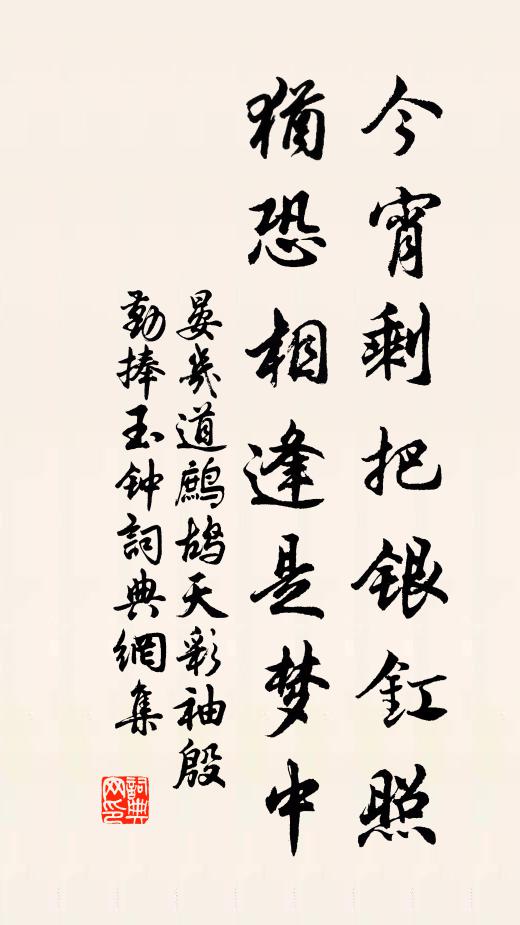 今宵剩把銀釭照
猶恐相逢是梦中
晏幾道鷓鴣天彩袖殷
勤捧玉钟詞典網集
詞典网印